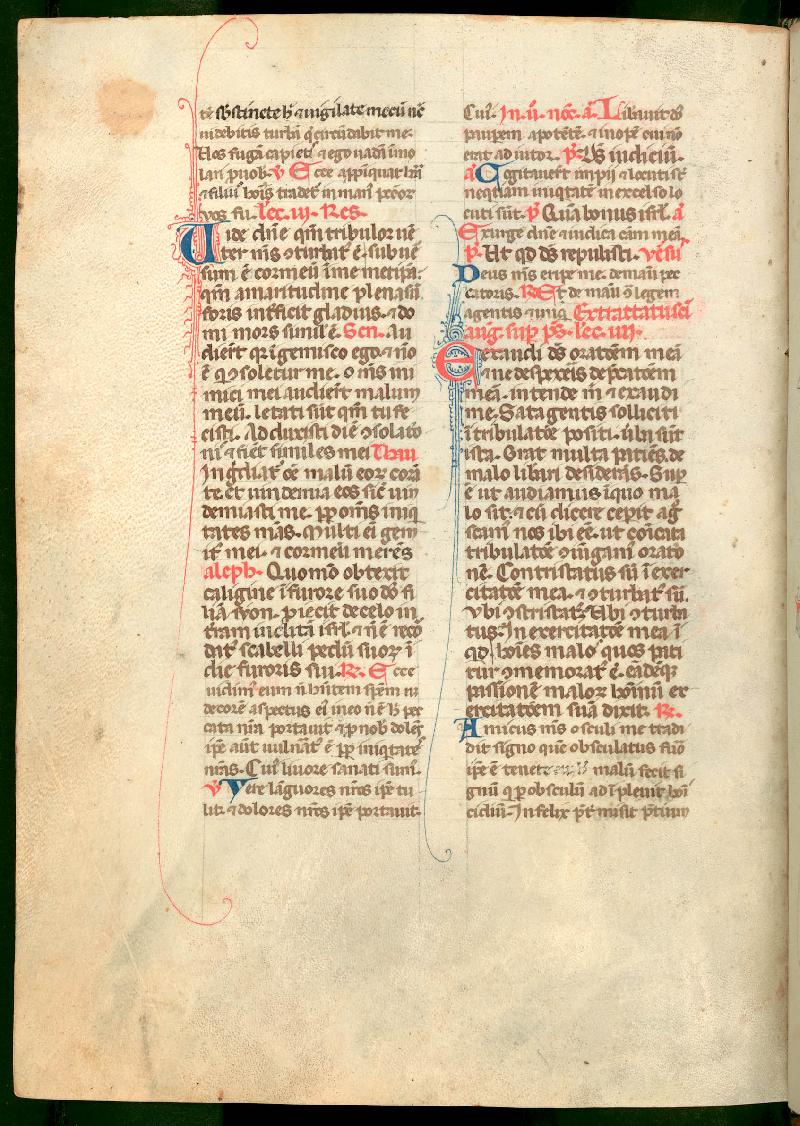 tē sustinete h̄ ⁊ vigilate mecū nc̄
uidebitis turbā q̄ circūdabit me.
Uos fugā capiet̄ ⁊ ego uadā īmo
lari p uob. ℣ Ecce app̄inquat h̄
⁊ filiꝰ hoīs tradet̄ in man̄ pctor
lec. iij. Res.
Uide dn̄e qm̄ tribulor uē
ter mꝰ ꝯturbat̄ ē. subuē
sum ē cor meū ī me metip̄a:
qm̄ amaritudine plena sū
foris int̄ficit gladiꝰ. ⁊ do
mi mors similꝰ ē. Scn. Au
dier̄t qꝛ īgemisco ego ⁊ nō
ē q ꝯsoletur me. o m̄s ini
mici mei audier̄t malum
meū. letati sūt qm̄ tu fe
cisti. Adduxisti diē ꝯsolatō
nꝭ ⁊ fiēt similes mei Thau
Ingͥdiat̄ oē malū eoꝝ corā
te. et uindemia eos sic̄ uin
demiasti me. pp̄ om̄s iniq
tates m̄as. Multi ei gem̄
itꝰ mei. ⁊ cor meū merēs
aleph. Quomō obtexit
caligine ī furore suo dn̄s fi
liā syon. p̄iecit de celo in
tr̄am inclitā isrl. ⁊ nō ē reco
datꝰ scabelli pedū suoꝝ ī
die furoris sui. ℟. Ecce
uidimꝰ eum n̄ hn̄tem spēm n̄
decorē aspectus eiꝰ in eo nō ē h̄ pec
cata nr̄a portauit ⁊ p nob dolet̄
ip̄e aūt uuln̄atꝰ ē pp̄ iniqtatē
nr̄as. Cuiꝰ liuore sanati sumꝰ.
℣ Vere lāguores nr̄os ip̄e tu
lit ⁊ dolores nr̄os ip̄e portauit.
Cuiꝰ. In. ij. noc̄. a. Liberauit ds̄
paup̄em a potētē. ⁊ inopē cui nō
erat adiutor. p̄. Ds̄ iudiciū.
a Cogitauer̄t impij ⁊ locuti sr̄
nequiam iniqtatē in excelso lo
cuti sūt. p̄ Quā bonus isrl. a
Exurge dn̄e ⁊ iudica cām meā.
p̄. Ut qd ds̄ repulisti. v̄sꝰ
Deus mꝰ eripe me. de manū pec
catoris. ℟ Et de manū ꝯ legem
agentis ⁊ iniq. Ex tractatu sc̄i
aug. sup̄ ps̄. lec. iiij.
Exaudi ds̄ oratōem meā
⁊ ne despexeis dep̄catōem
meā. intende m̄ ⁊ exaudi
me. Satagentis solliciti
ī tribulatōe positi. ūba sūt
ista. Orat multa patiēs. de
malo libari desiderās. Sup̄
ē ut audiamus ī quo ma
lo sit. ⁊ cū dicere cepit ag
scamꝰ nos ibi eē. ut cōicata
tribulatōe ꝯiūgamꝰ orato
nē. Contristatus sū ī exer
citatōe mea. ⁊ ꝯturbatꝰ sū.
Vbi ꝯtristatꝰ? Ubi ꝯturba
tus? In exercitatōe mea ī
qd. hoīes malo quos pati
tur ꝯmemoratꝰ ē. eādēq
passionē maloꝝ hoīnū ex
ercitatōem suā dixit. ℟.
Amicus mꝰ osculi me tradi
dit signo quē obsculatus fuō
ip̄e ē tenete malū fecit si
gnū q p obsculū adīpleuit hoī
cidiū. Infelix p̄t misit p̄tium